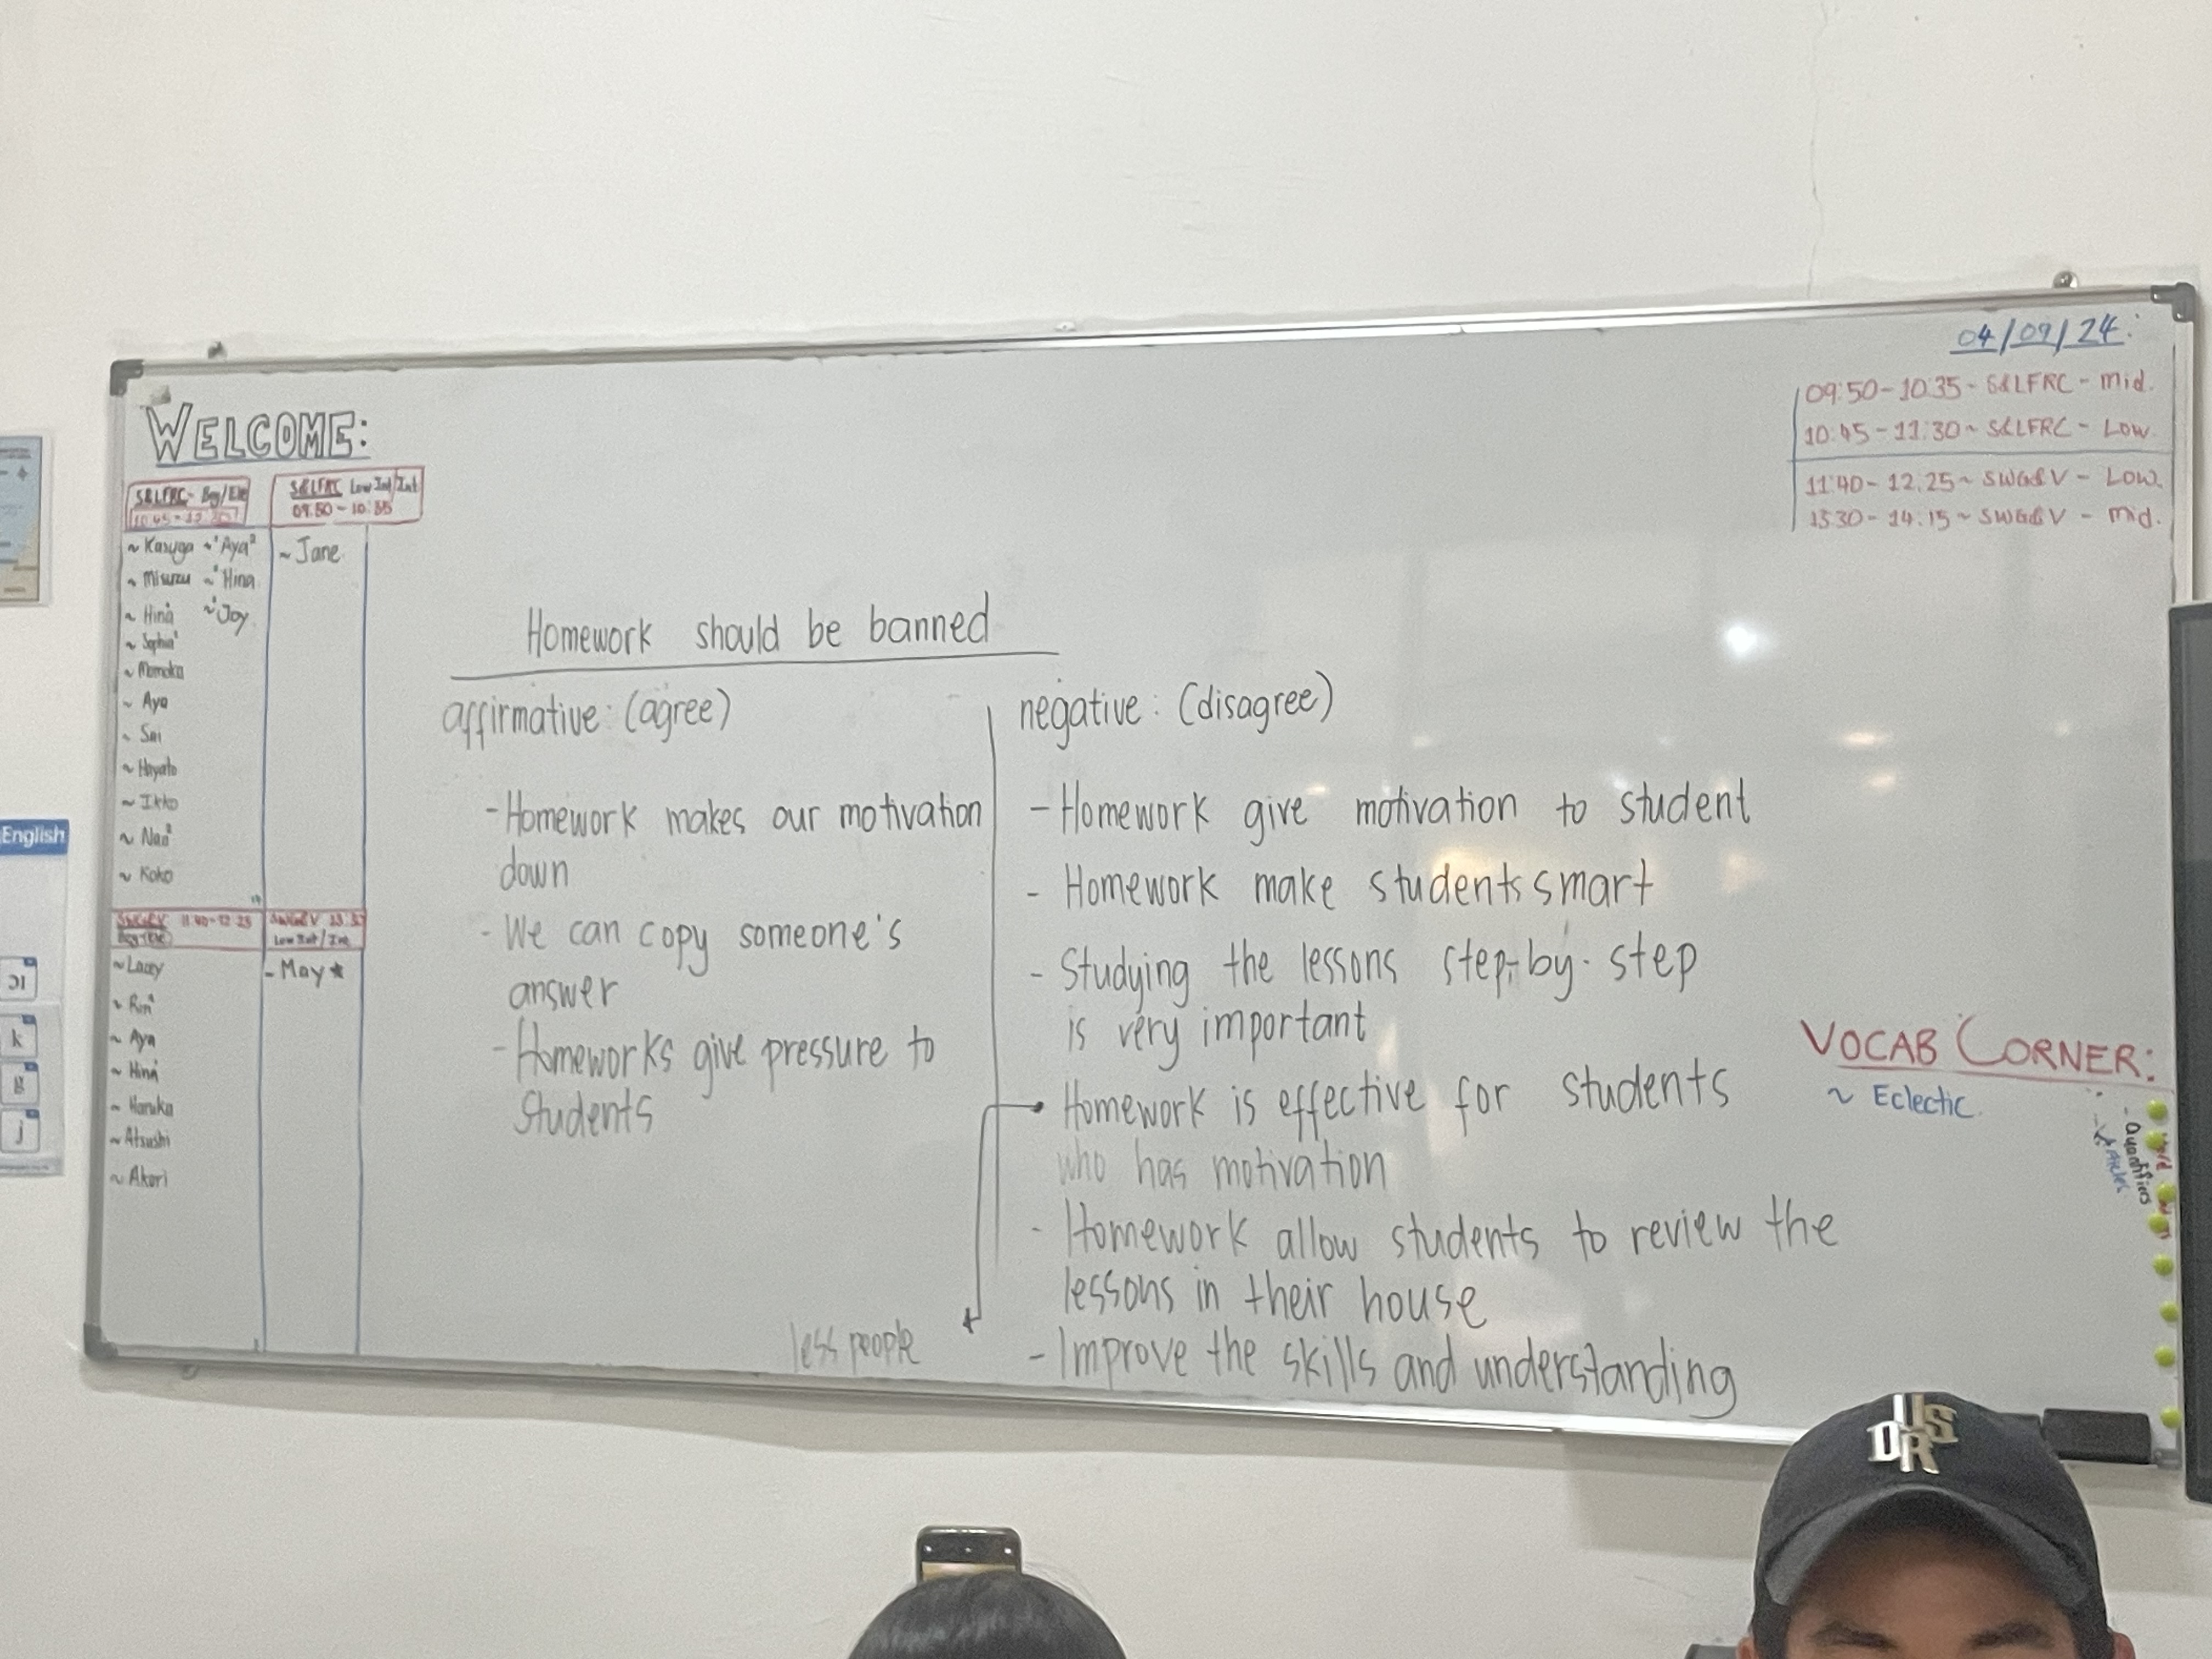 04/09/24
09:50-10:35- S&LFRC - Mid.
10:45-11:30~ S&LFRC - Low.
11:40-12.25~ SWG&V - Low.
13:30-14:15~ SWG&V - Mid.
WELCOME:
S&LFRC- Beg/Ele
S&LFRC Low Int/Int
09:50-10:35
~ Kasuga ~ Aya²
~ Jane
~ Misuzu ~ Hina
~ Hina ~ Joy
~ Sophia
~ Momoka
~ Aya
~ Sai
~ Hayato
~ Ikko
~ Nao
~ Koko
SWG&V 11:40-12:25
SWG&V
Low Int/Int
~ Lacey
- May ★
~ Rin
~ Aya
~ Hina
~ Haruka
~ Atsushi
~ Akari
Homework should be banned
affirmative: (agree)
- Homework makes our motivation
down
- We can copy someone's
answer
- Homeworks give pressure to
students
less people
negative: (disagree)
- Homework give motivation to student
- Homework make students smart
- Studying the lessons step-by-step
is very important
Homework is effective for students
who has motivation
- Homework allow students to review the
lessons in their house
- Improve the skills and understanding
VOCAB CORNER:
~ Eclectic
- Quantifiers
English
k
g
j
DRS